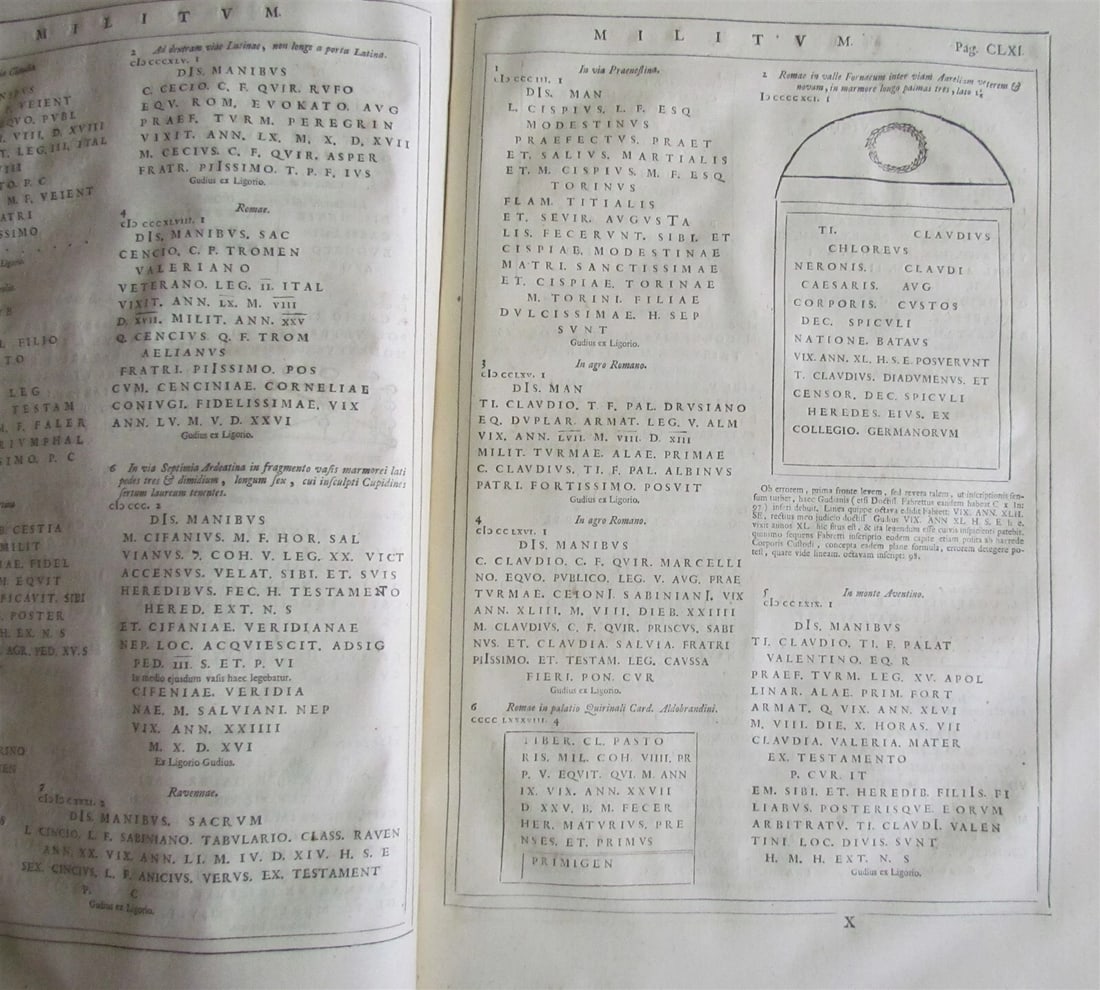 MILITVM.
VEIENT
QVO. PVBL
VIII. D. XVIII
LEG. III. ITAL
VIII
TO. P. C
M. F. VEIENT
ATRI
SSIMO
FILIO
TO
LEG
TESTAM
M. F. FALER
RIVMPHAL
SIMO. P. C
B. CESTIA
MILIT
IAE. FIDEL
M. EQVIT
FICAVIT. SIBI
POSTER
H. EX. N. S
AGR. PED. XV. S
2 Ad dextram viae Latinae, non longe a porta Latina.
cIↄ cccxlv. 1
DIS. MANIBVS
C. CECIO. C. F. QVIR. RVFO
EQV. ROM. EVOKATO. AVG
PRAEF. TVRM. PEREGRIN
VIXIT. ANN. LX. M. X. D. XVII
M. CECIVS. C. F. QVIR. ASPER
FRATR. PIISSIMO. T. P. F. IVS
Gudius ex Ligorio.
4 Romae.
cIↄ cccxlviii. 1
DIS. MANIBVS. SAC
CENCIO. C. P. TROMEN
VALERIANO
VETERANO. LEG. II. ITAL
VIXIT. ANN. LX. M. VIII
D. XVII. MILIT. ANN. XXV
Q. CENCIVS. Q. F. TROM
AELIANVS
FRATRI. PIISSIMO. POS
CVM. CENCINIAE. CORNELIAE
CONIVGI. FIDELISSIMAE. VIX
ANN. LV. M. V. D. XXVI
Gudius ex Ligorio.
6 In via Septimia Ardeatina in fragmento vasis marmorei lati
pedes tres & dimidium, longum sex, cui insculpti Cupidines
sertum laureum tenentes.
cIↄ ccc. 2
DIS. MANIBVS
M. CIFANIVS. M. F. HOR. SAL
VIANVS. 7. COH. V. LEG. XX. VICT
ACCENSVS. VELAT. SIBI. ET. SVIS
HEREDIBVS. FEC. H. TESTAMENTO
HERED. EXT. N. S
ET. CIFANIAE. VERIDIANAE
NEP. LOC. ACQVIESCIT. ADSIG
PED. III. S. ET. P. VI
In medio ejusdam vasis haec legebatur.
CIFENIAE. VERIDIA
NAE. M. SALVIANI. NEP
VIX. ANN. XXIIII
M. X. D. XVI
Ex Ligorio Gudius.
7 Ravennae.
DIS. MANIBVS. SACRVM
L. CINCIO. L. F. SABINIANO. TABVLARIO. CLASS. RAVEN
ANN. XX. VIX. ANN. LI. M. IV. D. XIV. H. S. E
SEX. CINCIVS. L. F. ANICIVS. VERVS. EX. TESTAMENT
P. C
Gudius ex Ligorio.
MILITVM. Pag. CLXI.
1 In via Praenestina.
cIↄ ccciii. 1
DIS. MAN
L. CISPIVS. L. F. ESQ
MODESTINVS
PRAEFECTVS. PRAET
ET. SALIVS. MARTIALIS
ET. M. CISPIVS. M. F. ESQ
TORINVS
FLAM. TITIALIS
ET. SEVIR. AVGVSTA
LIS. FECERVNT. SIBI. ET
CISPIAE. MODESTINAE
MATRI. SANCTISSIMAE
ET. CISPIAE. TORINAE
M. TORINI. FILIAE
DVLCISSIMAE. H. SEP
SVNT
Gudius ex Ligorio.
3 In agro Romano.
cIↄ cclxv. 1
DIS. MAN
TI. CLAVDIO. T. F. PAL. DRVSIANO
EQ. DVPLAR. ARMAT. LEG. V. ALM
VIX. ANN. LVII. M. VIII. D. XIII
MILIT. TVRMAE. ALAE. PRIMAE
C. CLAVDIVS. TI. F. PAL. ALBINVS
PATRI. FORTISSIMO. POSVIT
Gudius ex Ligorio.
4 In agro Romano.
cIↄ cclxvi. 1
DIS. MANIBVS
C. CLAVDIO. C. F. QVIR. MARCELLI
NO. EQVO. PVBLICO. LEG. V. AVG. PRAE
TVRMAE. CEIONI. SABINIANI. VIX
ANN. XLIII. M. VIII. DIEB. XXIIII
M. CLAVDIVS. C. F. QVIR. PRISCVS. SABI
NVS. ET. CLAVDIA. SALVIA. FRATRI
PIISSIMO. ET. TESTAM. LEG. CAVSSA
FIERI. PON. CVR
Gudius ex Ligorio.
6 Romae in palatio Quirinali Card. Aldobrandini.
cccc lxxxviii. 4
TIBER. CL. PASTO
RIS. MIL. COH. VIIII. PR
P. V. EQVIT. QVI. M. ANN
IX. VIX. ANN. XXVII
D XXV. B. M. FECER
HER. MATVRIVS. PRE
NSES. ET. PRIMVS
PRIMIGEN
2 Romae in valle Fornacum inter viam Aureliam veterem &
novam, in marmore longo palmas tres, lato 1½
Iↄ cccc xci. 1
TI. CLAVDIVS
CHLOREVS
NERONIS. CLAVDI
CAESARIS. AVG
CORPORIS. CVSTOS
DEC. SPICVLI
NATIONE. BATAVS
VIX. ANN. XL. H. S. E. POSVERVNT
T. CLAVDIVS. DIADVMENVS. ET
CENSOR. DEC. SPICVLI
HEREDES. EIVS. EX
COLLEGIO. GERMANORVM
Ob errorem, prima fronte levem, sed revera talem, ut inscriptionis sen-
sum turbet, haec Gudianis (etsi Doctiss. Fabrettus eandem habeat C. x Ins.
97.) inseri debuit. Linea quippe octava edidit Fabrett. VIX. ANN. XLH.
SE, rectius meo judicio doctiss. Gudius VIX. ANN XL. H. S. E. h. e.
vixit annos XL. hic situs est, & ita legendum esse cuivis inspicienti patebit,
quinimo sequens Fabretti inscriptio eodem capite etiam posita ab haerede
Corporis Custodi, concepta eadem plane formula, errorem detegere po-
test, quare vide liceat. octavam inscript. 98.
5 In monte Aventino.
cIↄ cc lxix. 1
DIS. MANIBVS
TI. CLAVDIO. TI. F. PALAT
VALENTINO. EQ. R
PRAEF. TVRM. LEG. XV. APOL
LINAR. ALAE. PRIM. FORT
ARMAT. Q. VIX. ANN. XLVI
M. VIII. DIE. X. HORAS. VII
CLAVDIA. VALERIA. MATER
EX. TESTAMENTO
P. CVR. IT
EM. SIBI. ET. HEREDIB. FILIIS. FI
LIABVS. POSTERISQVE. EORVM
ARBITRATV. TI. CLAVDI. VALEN
TINI. LOC. DIVIS. SVNT
H. M. H. EXT. N. S
Gudius ex Ligorio.
X